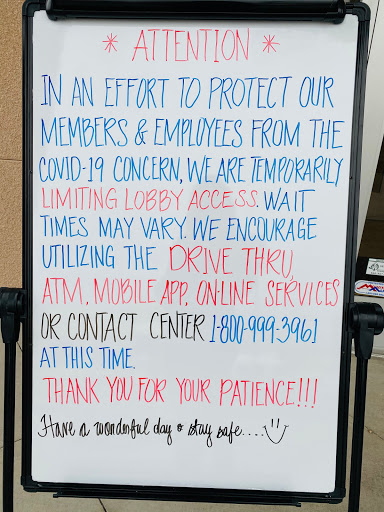 * ATTENTION *
IN AN EFFORT TO PROTECT OUR
MEMBERS & EMPLOYEES FROM THE
COVID-19 CONCERN, WE ARE TEMPORARILY
LIMITING LOBBY ACCESS. WAIT
TIMES MAY VARY. WE ENCOURAGE
UTILIZING THE DRIVE THRU,
ATM, MOBILE APP, ON-LINE SERVICES
OR CONTACT CENTER 1-800-999-3961
AT THIS TIME.
THANK YOU FOR YOUR PATIENCE!!!
Have a wonderful day & stay safe....